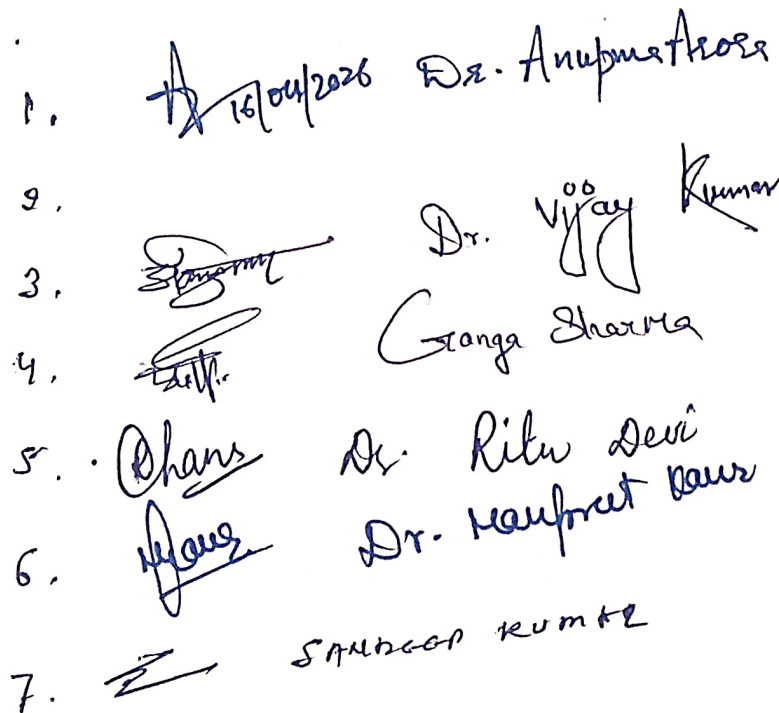 1. 16/04/2026 Dr. Anupma Arora
2.
3. Dr. Vijay Kumar
4. Ganga Sharma
5. Dr. Ritu Devi
6. Dr. Manpreet Kaur
7. SANDEEP KUMAR